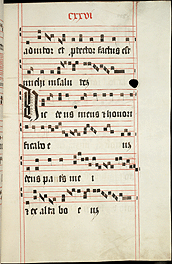 CXXVI
adiutor et ptector factus est
michi in salu tez
Hic deus meus et honori
ficabo e uz
deus patris me i
et exaltabo e uz